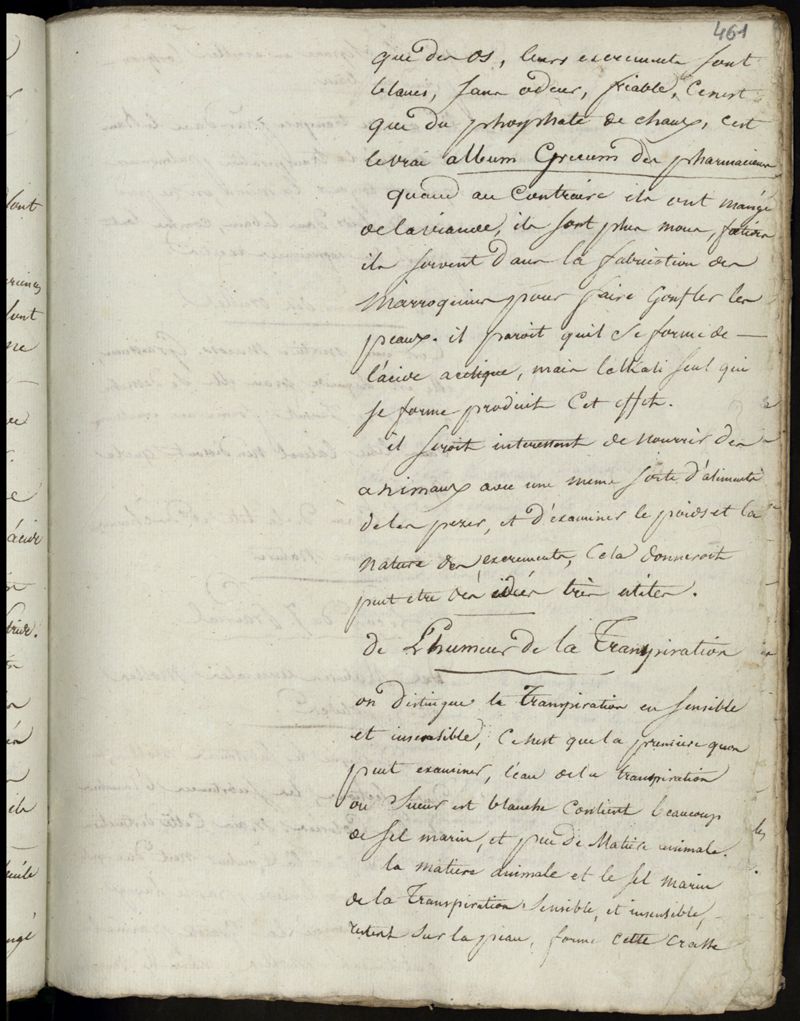 461
que des os, leurs excrements sont
blancs, sans odeur, friable, Cenest
que du phosphate de chaux, c'est
le vrai album Grecum des pharmaciens
quand au Contraire ils ont mangé
de la viande, ils sont plus mous, fætides
ils servent dans la fabrication des
Marroquins pour faire Gonfler les
peaux. il paroit quil Se forme de —
l'acide acetique, mais lalkali seul qui
se forme produit Cet effet.
il seroit interessant de nourrir des
animaux avec une meme sorte d'aliments
de les pezer, et d'examiner le poids et la
nature des excrements, Cela donneroit
peut etre des idées très utiles.
de L'humeur de la Transpiration
on distingue la Transpiration en sensible
et insensible, Cenest que la premiere quon
peut examiner, l'eau de la transpiration
ou Sueur est blanche contient beaucoup
de sel marin, et peu de Matiere animale.
la matiere animale et le sel marin
de la Transpiration Sensible, et insensible, —
restent Sur la peau, forme cette crasse